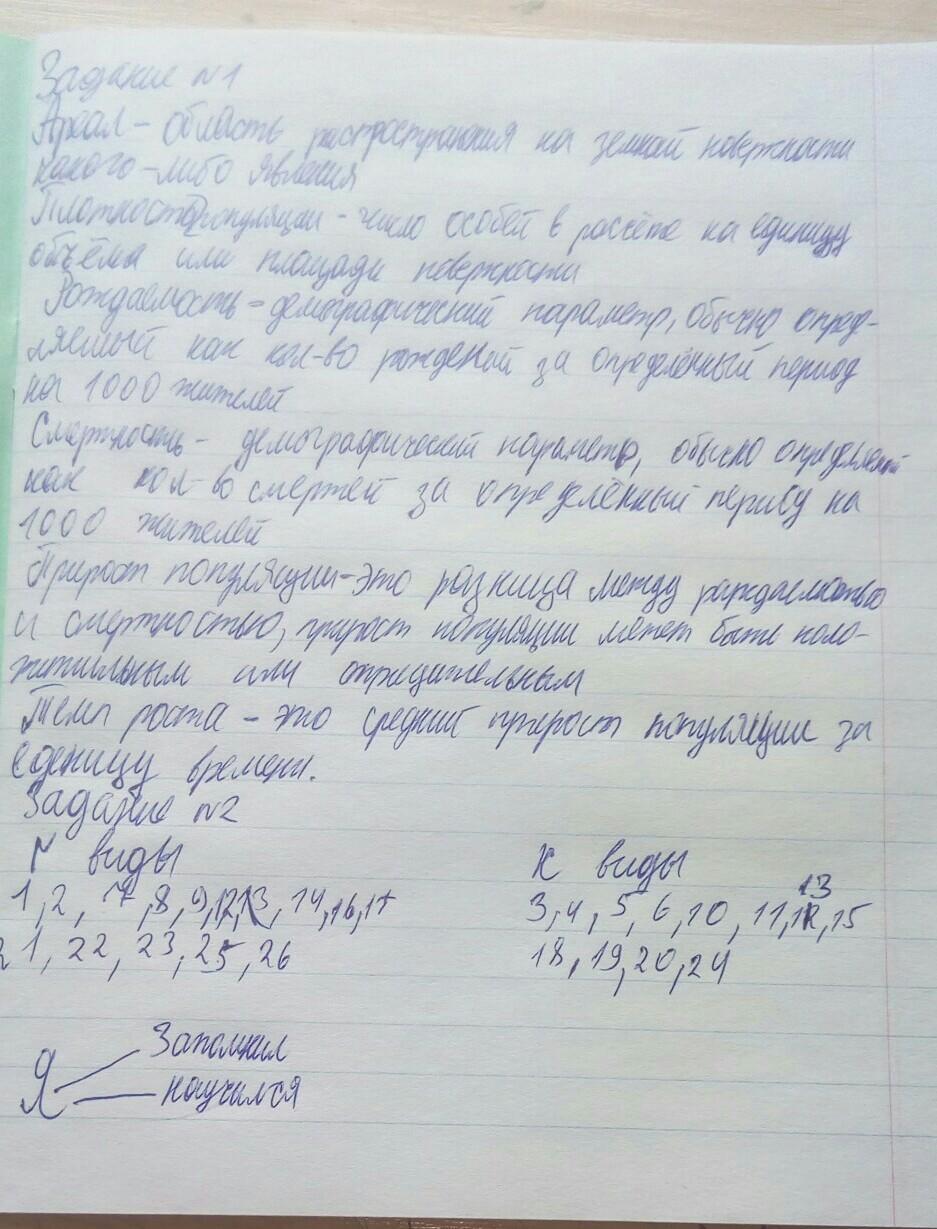 Задание №1
Ареал – область распространия на земной поверхности
какого-либо явления
Плотность популяции – число особей в расчёте на единицу
объёма или площади поверхности
Рождаемость – демографический параметр, обычно опред-
ляемый как кол-во рождений за определённый период
на 1000 жителей
Смертность – демографический параметр, обычно
как кол-во смертей за определённый период на
1000 жителей
Прирост популяции – это разница между рождаемостью
и смертностью, прирост популяции может быть поло-
жительным или отрицательным
Темп роста – это средний прирост популяции за
еденицу времени.
Задание №2
r виды
K виды
1, 2, 7, 8, 9, 12, 14, 16, 17
13
3, 4, 5, 6, 10, 11, 15
21, 22, 23, 25, 26
18, 19, 20, 24
Запомнил
Я
научился